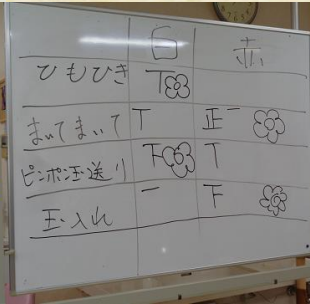 白 赤
ひもひき T
まいてまいて T 正一
ピンポン玉送り 下 T
玉入れ 一 下